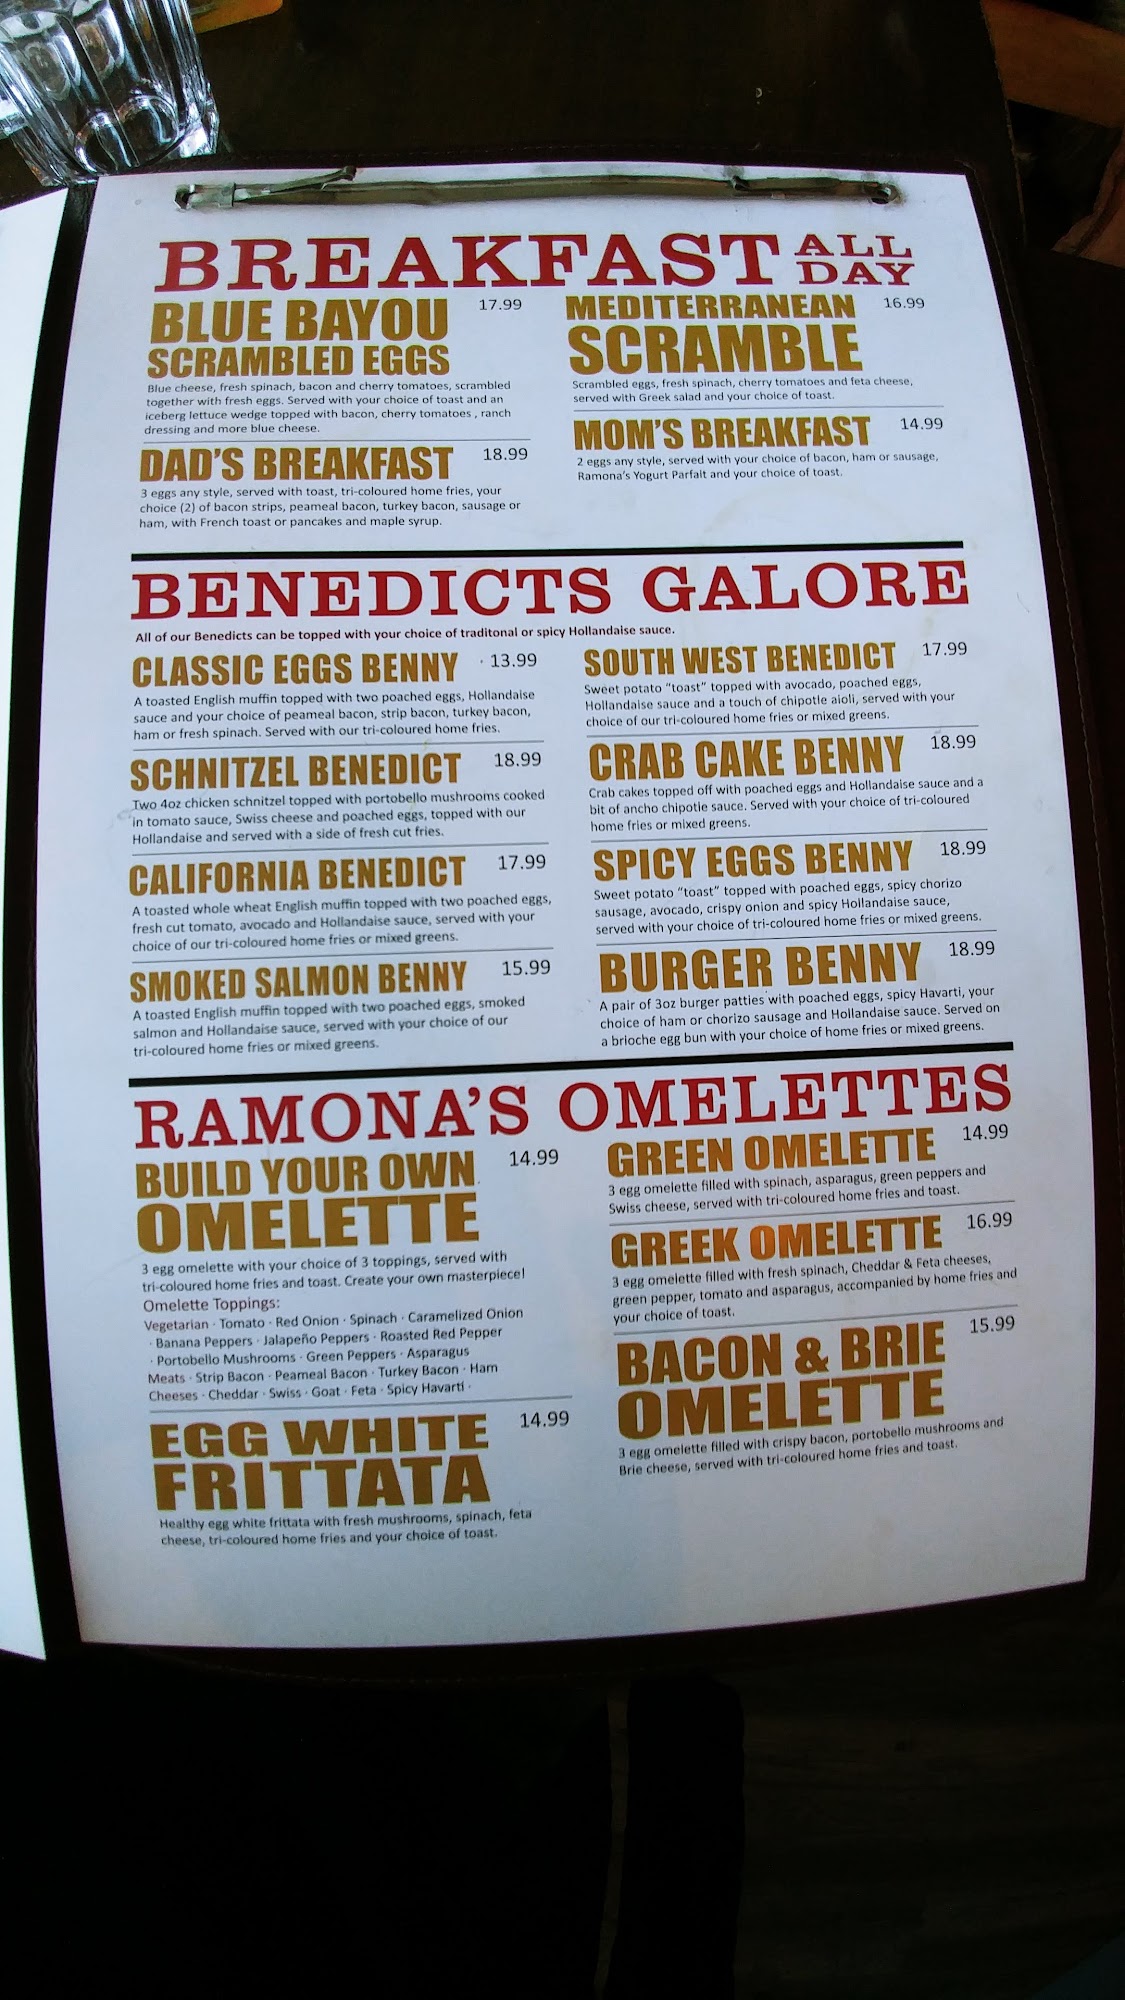 BREAKFAST ALL DAY
BLUE BAYOU 17.99
SCRAMBLED EGGS
Blue cheese, fresh spinach, bacon and cherry tomatoes, scrambled
together with fresh eggs. Served with your choice of toast and an
iceberg lettuce wedge topped with bacon, cherry tomatoes , ranch
dressing and more blue cheese.
DAD'S BREAKFAST 18.99
3 eggs any style, served with toast, tri-coloured home fries, your
choice (2) of bacon strips, peameal bacon, turkey bacon, sausage or
ham, with French toast or pancakes and maple syrup.
MEDITERRANEAN 16.99
SCRAMBLE
Scrambled eggs, fresh spinach, cherry tomatoes and feta cheese,
served with Greek salad and your choice of toast.
MOM'S BREAKFAST 14.99
2 eggs any style, served with your choice of bacon, ham or sausage,
Ramona's Yogurt Parfait and your choice of toast.
BENEDICTS GALORE
All of our Benedicts can be topped with your choice of traditonal or spicy Hollandaise sauce.
CLASSIC EGGS BENNY · 13.99
A toasted English muffin topped with two poached eggs, Hollandaise
sauce and your choice of peameal bacon, strip bacon, turkey bacon,
ham or fresh spinach. Served with our tri-coloured home fries.
SCHNITZEL BENEDICT 18.99
Two 4oz chicken schnitzel topped with portobello mushrooms cooked
in tomato sauce, Swiss cheese and poached eggs, topped with our
Hollandaise and served with a side of fresh cut fries.
CALIFORNIA BENEDICT 17.99
A toasted whole wheat English muffin topped with two poached eggs,
fresh cut tomato, avocado and Hollandaise sauce, served with your
choice of our tri-coloured home fries or mixed greens.
SMOKED SALMON BENNY 15.99
A toasted English muffin topped with two poached eggs, smoked
salmon and Hollandaise sauce, served with your choice of our
tri-coloured home fries or mixed greens.
SOUTH WEST BENEDICT 17.99
Sweet potato "toast" topped with avocado, poached eggs,
Hollandaise sauce and a touch of chipotle aioli, served with your
choice of our tri-coloured home fries or mixed greens.
CRAB CAKE BENNY 18.99
Crab cakes topped off with poached eggs and Hollandaise sauce and a
bit of ancho chipotle sauce. Served with your choice of tri-coloured
home fries or mixed greens.
SPICY EGGS BENNY 18.99
Sweet potato "toast" topped with poached eggs, spicy chorizo
sausage, avocado, crispy onion and spicy Hollandaise sauce,
served with your choice of tri-coloured home fries or mixed greens.
BURGER BENNY 18.99
A pair of 3oz burger patties with poached eggs, spicy Havarti, your
choice of ham or chorizo sausage and Hollandaise sauce. Served on
a brioche egg bun with your choice of home fries or mixed greens.
RAMONA'S OMELETTES
BUILD YOUR OWN 14.99
OMELETTE
3 egg omelette with your choice of 3 toppings, served with
tri-coloured home fries and toast. Create your own masterpiece!
Omelette Toppings:
Vegetarian · Tomato · Red Onion · Spinach · Caramelized Onion
· Banana Peppers · Jalapeño Peppers · Roasted Red Pepper
· Portobello Mushrooms · Green Peppers · Asparagus
Meats · Strip Bacon · Peameal Bacon · Turkey Bacon · Ham
Cheeses · Cheddar · Swiss · Goat · Feta · Spicy Havarti ·
EGG WHITE 14.99
FRITTATA
Healthy egg white frittata with fresh mushrooms, spinach, feta
cheese, tri-coloured home fries and your choice of toast.
GREEN OMELETTE 14.99
3 egg omelette filled with spinach, asparagus, green peppers and
Swiss cheese, served with tri-coloured home fries and toast.
GREEK OMELETTE 16.99
3 egg omelette filled with fresh spinach, Cheddar & Feta cheeses,
green pepper, tomato and asparagus, accompanied by home fries and
your choice of toast.
BACON & BRIE 15.99
OMELETTE
3 egg omelette filled with crispy bacon, portobello mushrooms and
Brie cheese, served with tri-coloured home fries and toast.